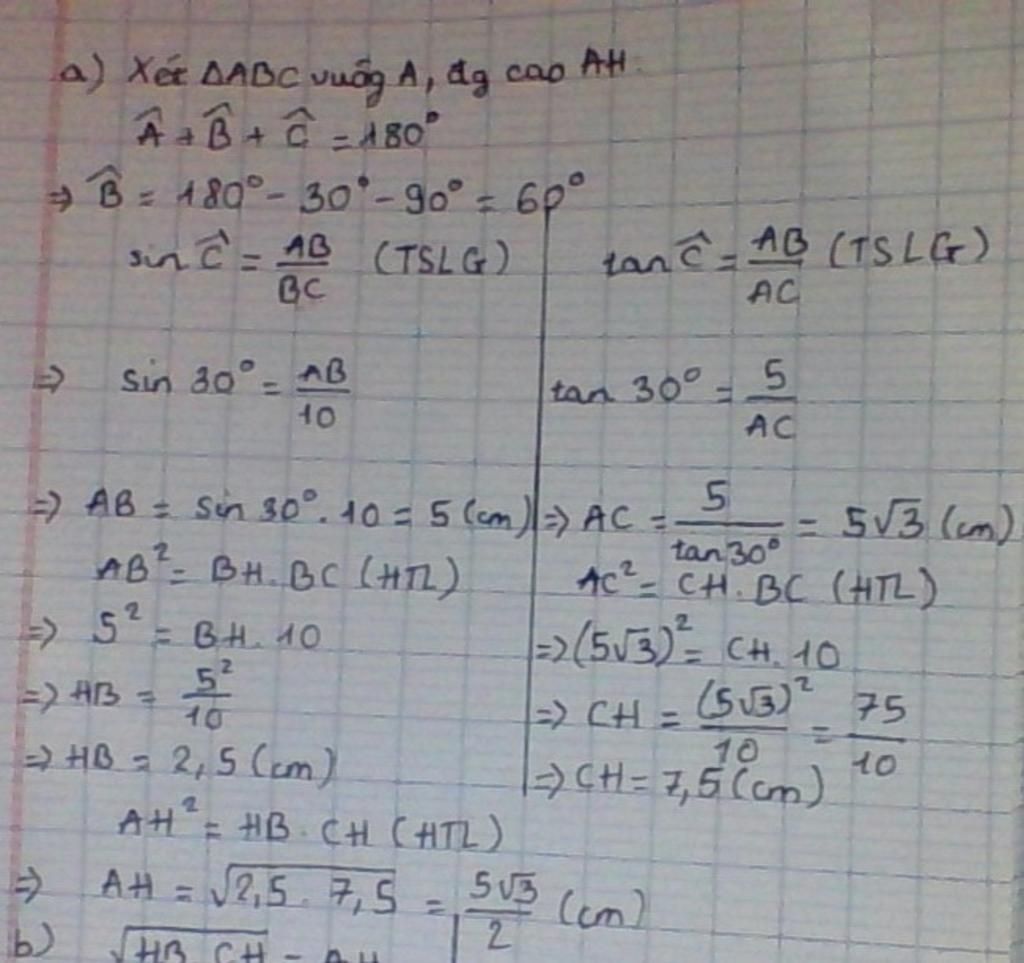 a) Xét ΔABC vuôg A, đg cao AH.
Â + B̂ + Ĉ = 180°
⇒ B̂ = 180° - 30° - 90° = 60°
sin Ĉ = AB/BC (TSLG)
⇒ sin 30° = AB/10
⇒ AB = sin 30°. 10 = 5 (cm)
AB² = BH. BC (HTL)
⇒ 5² = BH. 10
⇒ HB = 5²/10
⇒ HB = 2,5 (cm)
tan Ĉ = AB/AC (TSLG)
tan 30° = 5/AC
⇒ AC = 5/tan30° = 5√3 (cm)
AC² = CH. BC (HTL)
⇒ (5√3)² = CH. 10
⇒ CH = (5√3)²/10 = 75/10
⇒ CH = 7,5 (cm)
AH² = HB. CH (HTL)
⇒ AH = √(2,5. 7,5) = 5√3/2 (cm)
b) √(HB CH) = AH